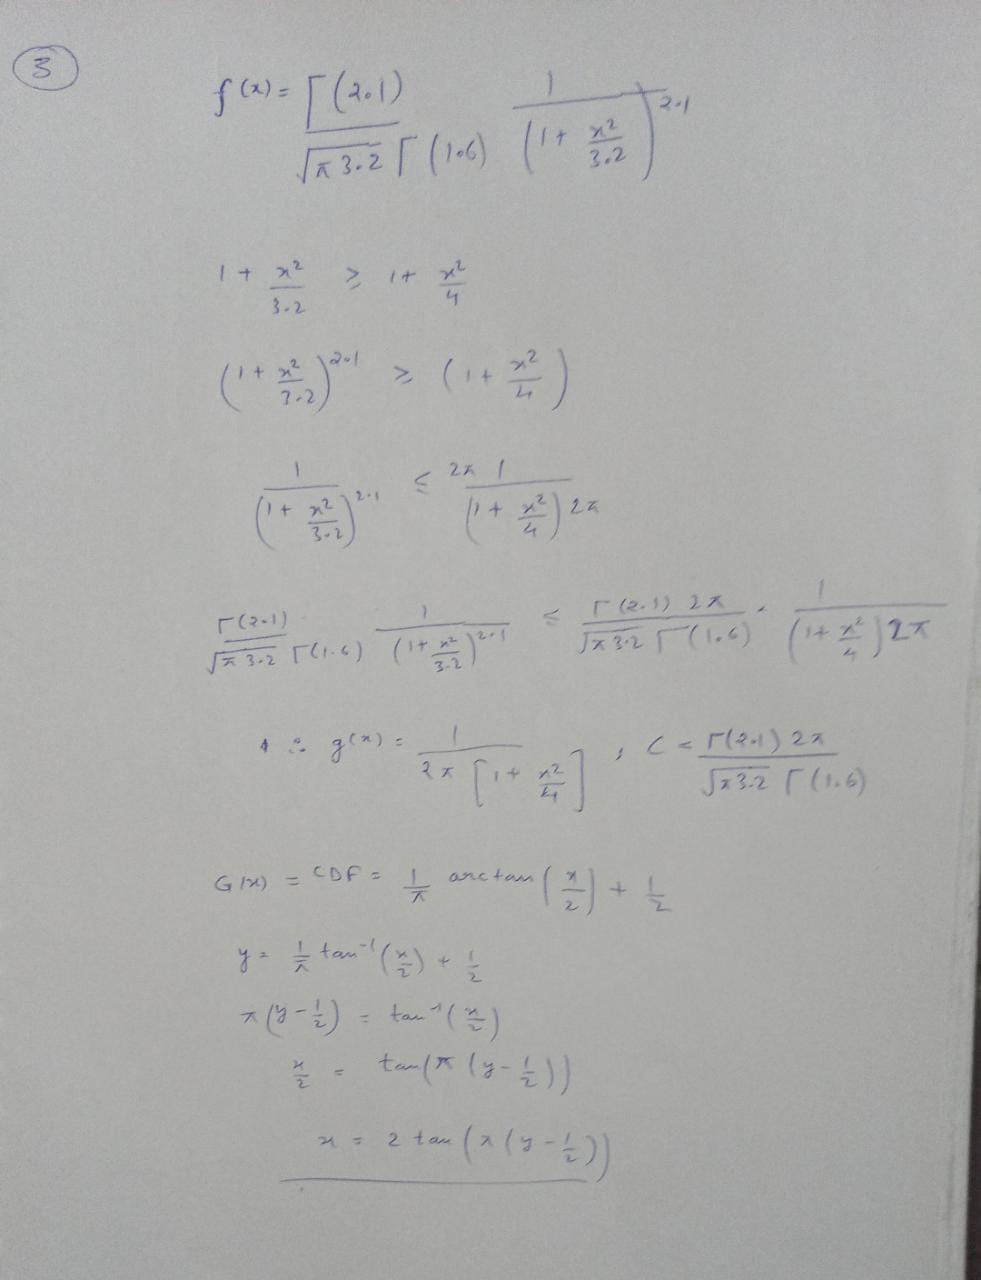 3
f(x) = Γ(2.1) / (√(π 3.2) Γ(1.6)) 1 / (1 + x²/3.2)^2.1
1 + x²/3.2 ≥ 1 + x²/4
(1 + x²/3.2)^2.1 ≥ (1 + x²/4)
1 / (1 + x²/3.2)^2.1 ≤ 2π 1 / ((1 + x²/4) 2π)
Γ(2.1) / (√(π 3.2) Γ(1.6)) 1 / (1 + x²/3.2)^2.1 ≤ Γ(2.1) 2π / (√(π 3.2) Γ(1.6)) · 1 / ((1 + x²/4) 2π)
∴ g(x) = 1 / (2π [1 + x²/4]) , C = Γ(2.1) 2π / (√(π 3.2) Γ(1.6))
G(x) = CDF = 1/π arctan(x/2) + 1/2
y = 1/π tan⁻¹(x/2) + 1/2
π(y - 1/2) = tan⁻¹(x/2)
x/2 = tan(π(y - 1/2))
x = 2 tan(π(y - 1/2))